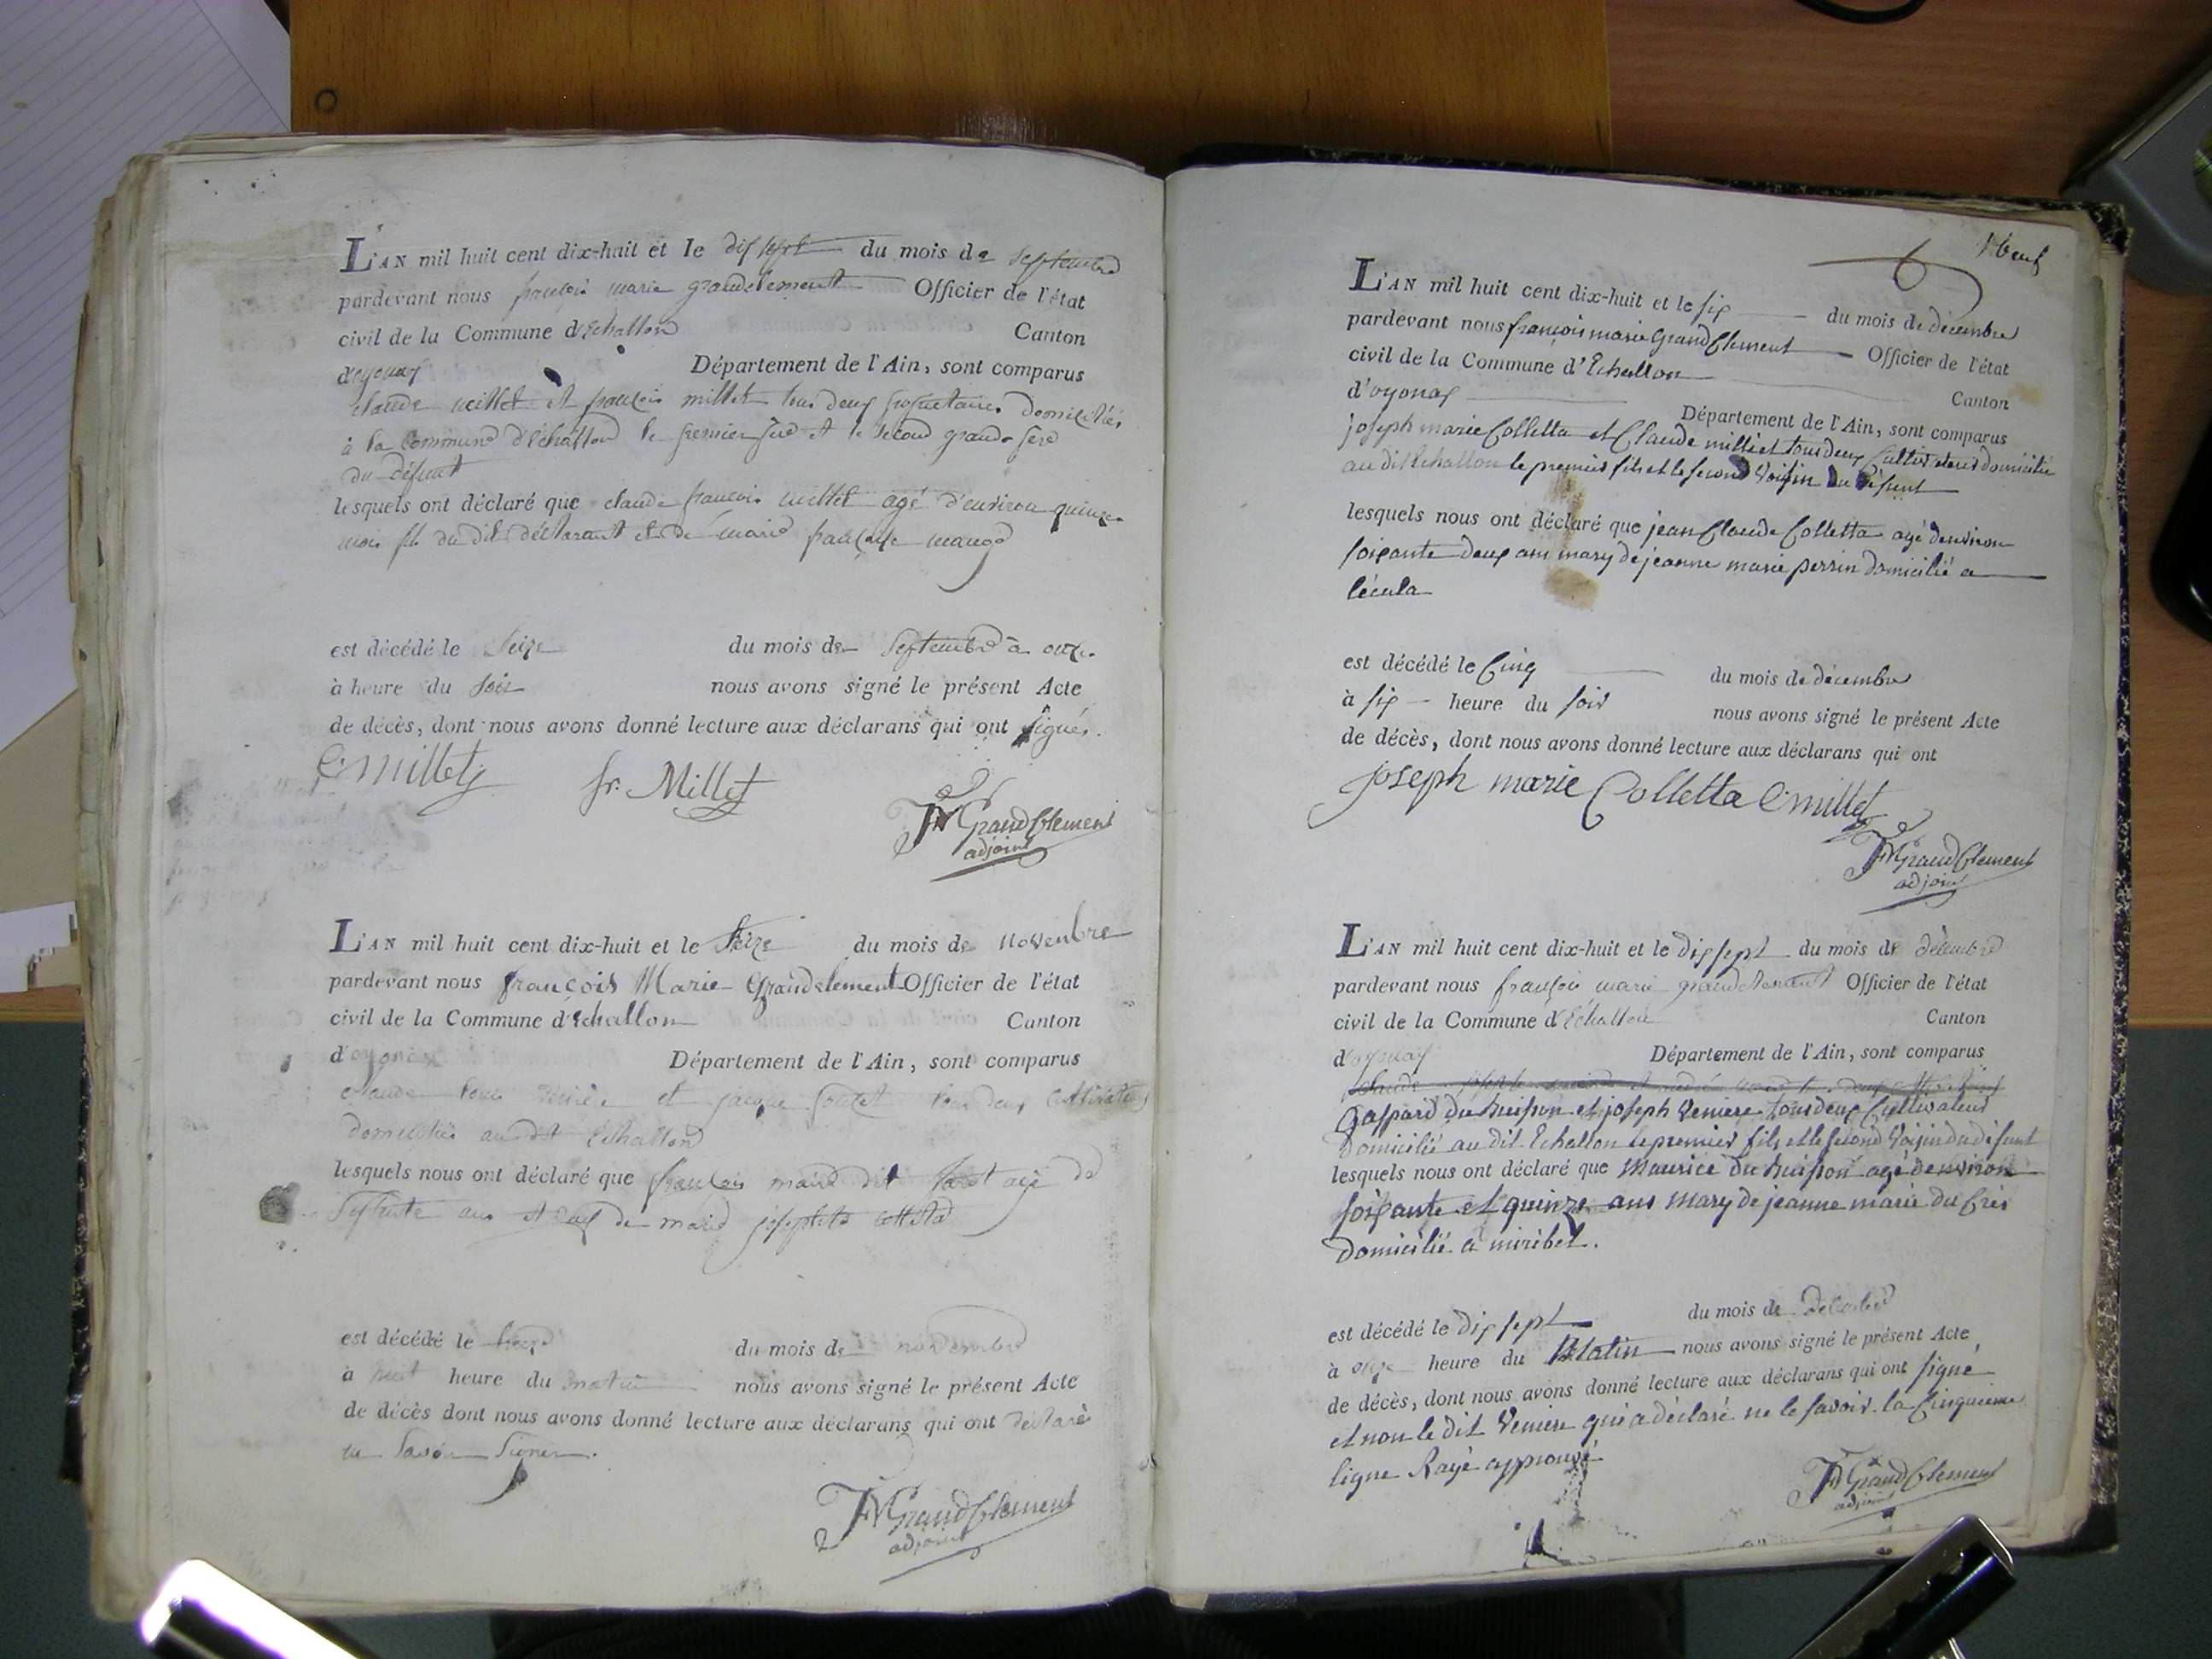 L'AN mil huit cent dix-huit et le dix sept du mois de septembre
pardevant nous françois marie grandclement Officier de l'état
civil de la Commune d'Echallon Canton
d'oyonax Département de l'Ain, sont comparus
claude millet et françois millet tous deux proprietaires domiciliés
à la Commune d'échallon le premier père et le second grand père
du défunt
lesquels ont déclaré que claude françois millet agé d'environ quinze
mois fils du dit déclarant et de marie françoise
est décédé le seize du mois de septembre à onze
à heure du soir nous avons signé le présent Acte
de décès, dont nous avons donné lecture aux déclarans qui ont signés.
C millet fr. Millet
FM GrandClement
adjoint
L'AN mil huit cent dix-huit et le seize du mois de novembre
pardevant nous françois Marie Grandclement Officier de l'état
civil de la Commune d'Echallon Canton
d'oyonax Département de l'Ain, sont comparus
claude et jacque tous deux cultivateurs
domiciliés au dit Echallon
lesquels nous ont déclaré que françois dit agé de
septante ans et
est décédé le du mois de novembre
à huit heure du matin nous avons signé le présent Acte
de décès dont nous avons donné lecture aux déclarans qui ont déclaré
ne savoir signer.
FM GrandClement
adjoint
L'AN mil huit cent dix-huit et le six du mois de décembre
pardevant nous françois marie GrandClement Officier de l'état
civil de la Commune d'Echallon Canton
d'oyonax Département de l'Ain, sont comparus
joseph marie Colletta et Claude millet tous deux Cultivateurs domicilié
au dit Echallon le premier fils et le second Voisin du défunt
lesquels nous ont déclaré que jean Claude Colletta agé denviron
soixante deux ans mary de jeanne marie perrin domicilié a
lécula
est décédé le Cinq du mois de décembre
à six heure du soir nous avons signé le présent Acte
de décès, dont nous avons donné lecture aux déclarans qui ont
joseph marie Colletta C millet
FM GrandClement
adjoint
L'AN mil huit cent dix-huit et le dix sept du mois de décembre
pardevant nous françois marie grandclement Officier de l'état
civil de la Commune d'Echallon Canton
d'oyonax Département de l'Ain, sont comparus
Gaspard Du buisson et joseph Veniere tous deux Cultivateurs
domicilié au dit Echallon le premier fils et le second Voisin du défunt
lesquels nous ont déclaré que Maurice Du buisson agé denviron
soixante et quinze ans mary de jeanne marie du Cres
domicilié a miribel.
est décédé le dix sept du mois de décembre
à onze heure du Matin nous avons signé le présent Acte
de décès, dont nous avons donné lecture aux déclarans qui ont signé
et non le dit Veniere qui a déclaré ne le savoir. la Cinquieme
ligne Rayé approuvé
FM GrandClement
adjoint